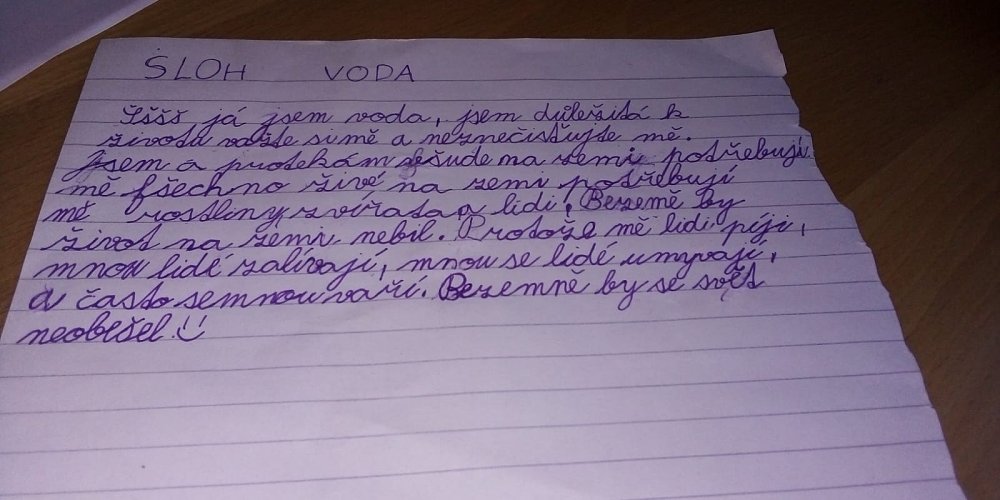 SLOH VODA
Šššš já jsem voda, jsem důležitá k
životu važte si mě a neznečišťujte mě.
Jsem a protékám fšude na zemi potřebují
mě fšechno živé na zemi potřebují
mě rostliny zvířata a lidi. Bezemě by
život na zemi nebil. Protože mě lidi pijí,
mnou lidé zalívají, mnou se lidé umyvají,
a často semnou vaří. Bezemně by se svět
neobešel! :)